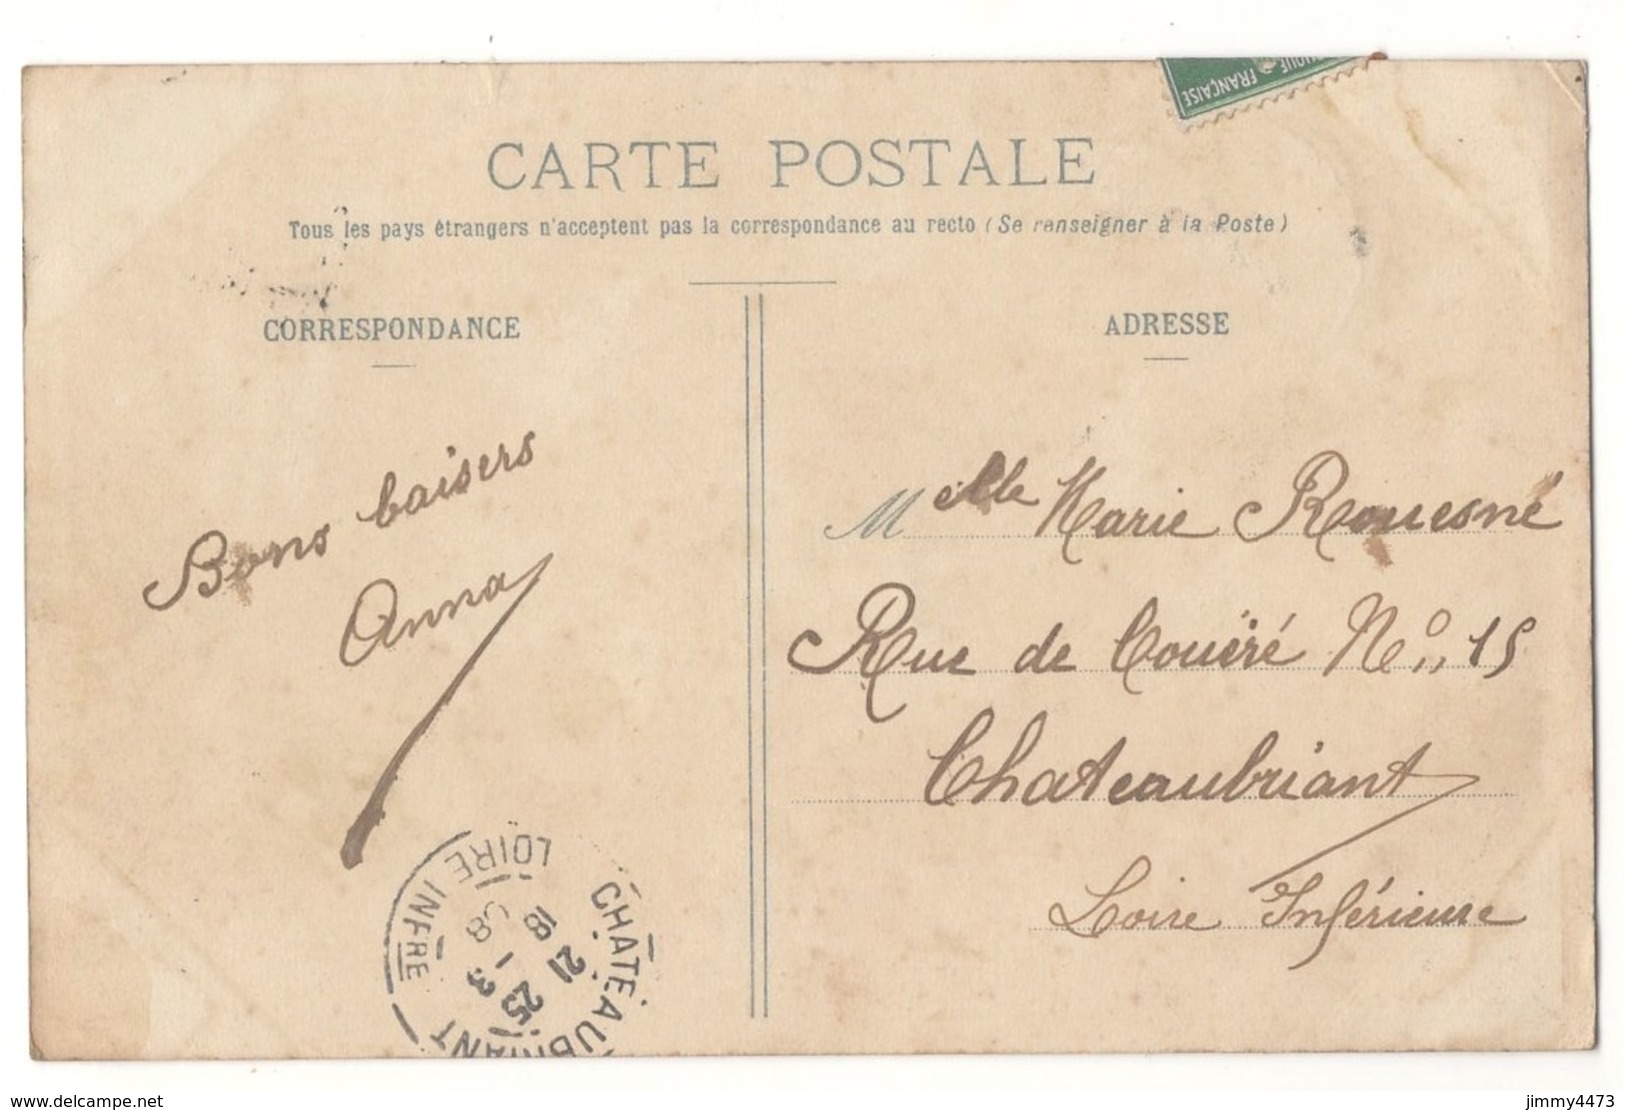 FRANÇAISE
CARTE POSTALE
Tous les pays étrangers n'acceptent pas la correspondance au recto (Se renseigner à la Poste)
CORRESPONDANCE
Bons baisers
Anna
ADRESSE
Melle Marie Rouesné
Rue de Couëré No 15
Chateaubriant
Loire Inférieure
CHATEAUBRIANT
LOIRE INFRE
18
21
25 - 3
08
www.delcampe.net
jimmy4473